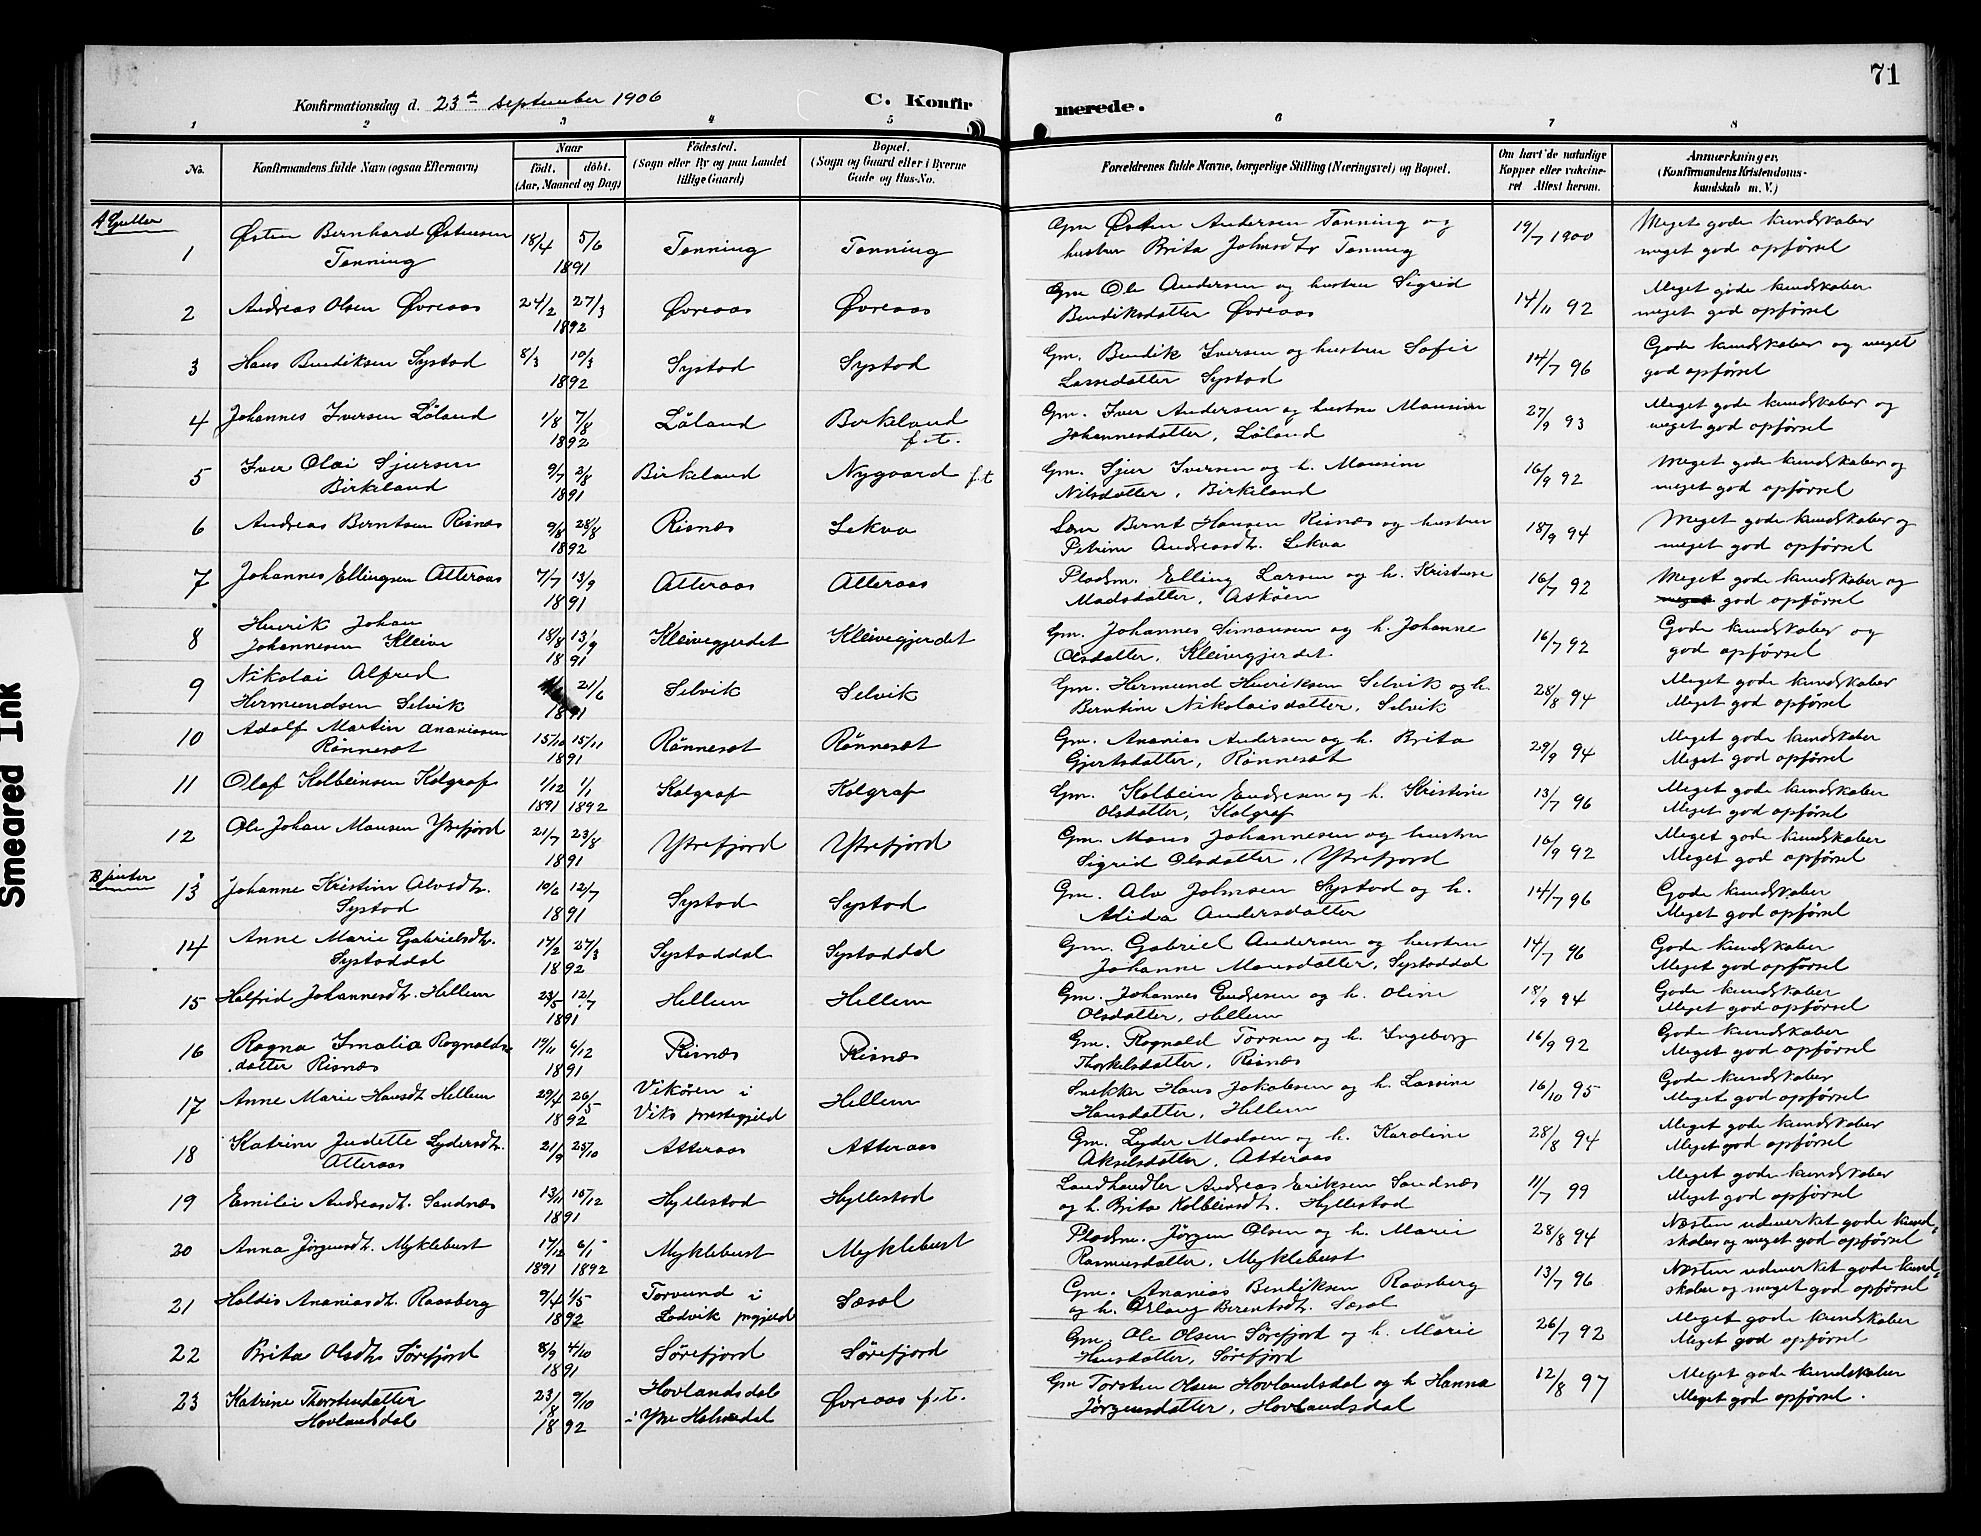 71
Konfirmationsdag d. 23de september 1906 C. Konfir merede.
1 2 3 4 5 6 7 8
No. Konfirmandens fulde Navn (ogsaa Efternavn) Naar född. döbt. (Aar, Maaned og Dag) Födested. (Sogn eller By og paa Landet tillige Gaard) Bopæl. (Sogn og Gaard eller i Byerne Gade og Hus-No. Forældrenes fulde Navne, borgerlige Stilling (Næringsvei) og Bopæl. Om havt de naturlige Kopper eller vakcineret Attest herom. Anmærkninger. (Konfirmandens Kristendomskundskab m. V.)
A Gutter
1 Østen Bernhard Østensen Tanning 18/4 5/6 1891 Tanning Tanning Gm Østen Andersen Tanning og hustru Brita Johnsdtr Tanning 19/7 1900 Meget gode kundskaber meget god opførsel
2 Andreas Olsen Øvreaas 24/2 27/3 1892 Øvreaas Øvreaas Gm Ole Andersen og hustru Sigrid Bendiksdatter Øvreaas 14/11 92 Meget gode kundskaber meget god opførsel
3 Hans Bendiksen Systad 8/3 10/3 1892 Systad Systad Gm. Bendik Iversen og hustru Sofie Lassedatter Systad 14/7 96 Gode kundskaber og meget god opførsel
4 Johannes Iversen Löland 1/8 7/8 1892 Löland Birkeland f.t. Gm. Iver Andersen og hustru Mansine Johannesdatter, Löland 27/9 93 Meget gode kundskaber og meget god opførsel
5 Iver Olai Sjursen Birkeland 9/7 2/8 1891 Birkeland Nygaard f.t Gm. Sjur Iversen og h. Mansine Nilsdatter, Birkeland 16/9 92 Meget gode kundskaber og meget god opførsel
6 Andreas Berntsen Risnæs 9/8 28/8 1892 Risnæs Lekva Bernt Hansen Risnæs og hustru Petrine Andreasdt. Lekva 18/9 94 Meget gode kundskaber og meget god opførsel
7 Johannes Ellingsen Atteraas 7/7 13/9 1891 Atteraas Atteraas Pladsm. Elling Larsen og h. Kristine Madsdatter, Askøen 16/7 92 Meget gode kundskaber og god opførsel
8 Henrik Johan Johannesen Kleive 18/8 13/9 1891 Kleivegjerdet Kleivegjerdet Gm. Johannes Simonsen og h. Johanne Olsdatter, Kleivegjerdet 16/7 92 Gode kundskaber og god opførsel
9 Nikolai Alfred Hermundsen Selvik 21/6 1891 Selvik Selvik Gm. Hermund Henriksen Selvik og h. Berntine Nikolaisdatter, Selvik 28/8 94 Meget gode kundskaber Meget god opførsel
10 Adolf Martin Ananiassen Rönnesæt 15/10 15/11 1891 Rönnesæt Rönnesæt Gm. Ananias Andersen og h. Brita Gjertsdatter, Rönnesæt 29/9 94 Meget gode kundskaber Meget god opførsel
11 Olaf Kolbeinsen Kolgraf 1/12 1/1 1891 1892 Kolgraf Kolgraf Gm. Kolbein Endresen og h. Kristine Olsdatter, Kolgraf 13/7 96 Meget gode kundskaber Meget god opførsel
12 Ole Johan Mansen Ytrefjord 21/7 23/8 1891 Ytrefjord Ytrefjord Gm. Mons Johannesen og hustru Sigrid Olsdatter, Ytrefjord 16/9 92 Meget gode kundskaber Meget god opførsel
B piker
13 Johanne Kristine Alvsdt. Systad 10/6 12/7 1891 Systad Systad Gm. Alv Johnsen Systad og h. Alida Andersdatter 14/7 96 Gode kundskaber Meget god opførsel
14 Anne Marie Gabrielsdt. Systaddal 17/2 27/3 1892 Systaddal Systaddal Gm. Gabriel Andersen og hustru Johanne Mansdatter, Systaddal 14/7 96 Gode kundskaber Meget god opførsel
15 Halfrid Johannesdt. Hellem 23/5 12/7 1891 Hellem Hellem Gm. Johannes Endresen og h. Oline Olsdatter, Hellem 18/9 94 Gode kundskaber Meget god opførsel
16 Ragna Amalia Ragnaldsdatter Risnæs 19/11 6/12 1891 Risnæs Risnæs Gm. Ragnald Torsen og h. Ingeborg Thorkelsdatter, Risnæs 16/9 92 Gode kundskaber Meget god opførsel
17 Anne Marie Hansdt Hellem 29/4 26/5 1892 Vikören i Viks prestegjeld Hellem Snekker Hans Jakobsen og h. Lassine Hansdatter, Hellem 16/10 95 Gode kundskaber Meget god opførsel
18 Katrine Judette Lydersdt. Atteraas 21/9 25/10 Atteraas Atteraas Gm. Lyder Madsen og h. Karoline Akselsdatter, Atteraas 28/8 94 Meget gode kundskaber Meget god opførsel
19 Emilie Andreasdt. Sandnæs 13/11 10/12 1891 Hyllestad Hyllestad Landhandler Andreas Eriksen Sandnæs og h. Brita Kolbeinsdt. Hyllestad 11/7 99 Meget gode kundskaber Meget god opførsel
20 Anna Jörgensdt. Myklebust 17/12 6/1 1891 1892 Myklebust Myklebust Pladsm. Jörgen Olsen og h. Marie Rasmusdatter, Myklebust 28/8 94 Næsten udmerket gode kundskaber og meget god opførsel
21 Haldis Ananiasdt. Raasberg 9/4 1/5 1892 Torvund i Ladvik prgjeld Sæsol Gm. Ananias Bendiksen Raasberg og h. Berentsdt. Sæsol 13/7 96 Næsten udmerket gode kundskaber og meget god opførsel
22 Brita Olsdtr Sörefjord 8/9 4/10 1891 Sörefjord Sörefjord Gm. Ole Olsen Sörefjord og h. Marie Hansdatter, Sörefjord 26/7 92 Meget gode kundskaber Meget god opførsel
23 Katrine Thorstensdatter Hovlandsdal 23/8 9/10 1892 Hovlandsdal i Ytre Holmedal Øvreaas f.t. Gm Torsten Olsen Hovlandsdal og h Hanna Jørgensdatter, Hovlandsdal 12/8 97 Meget gode kundskaber Meget god opførsel.
Smeared Ink